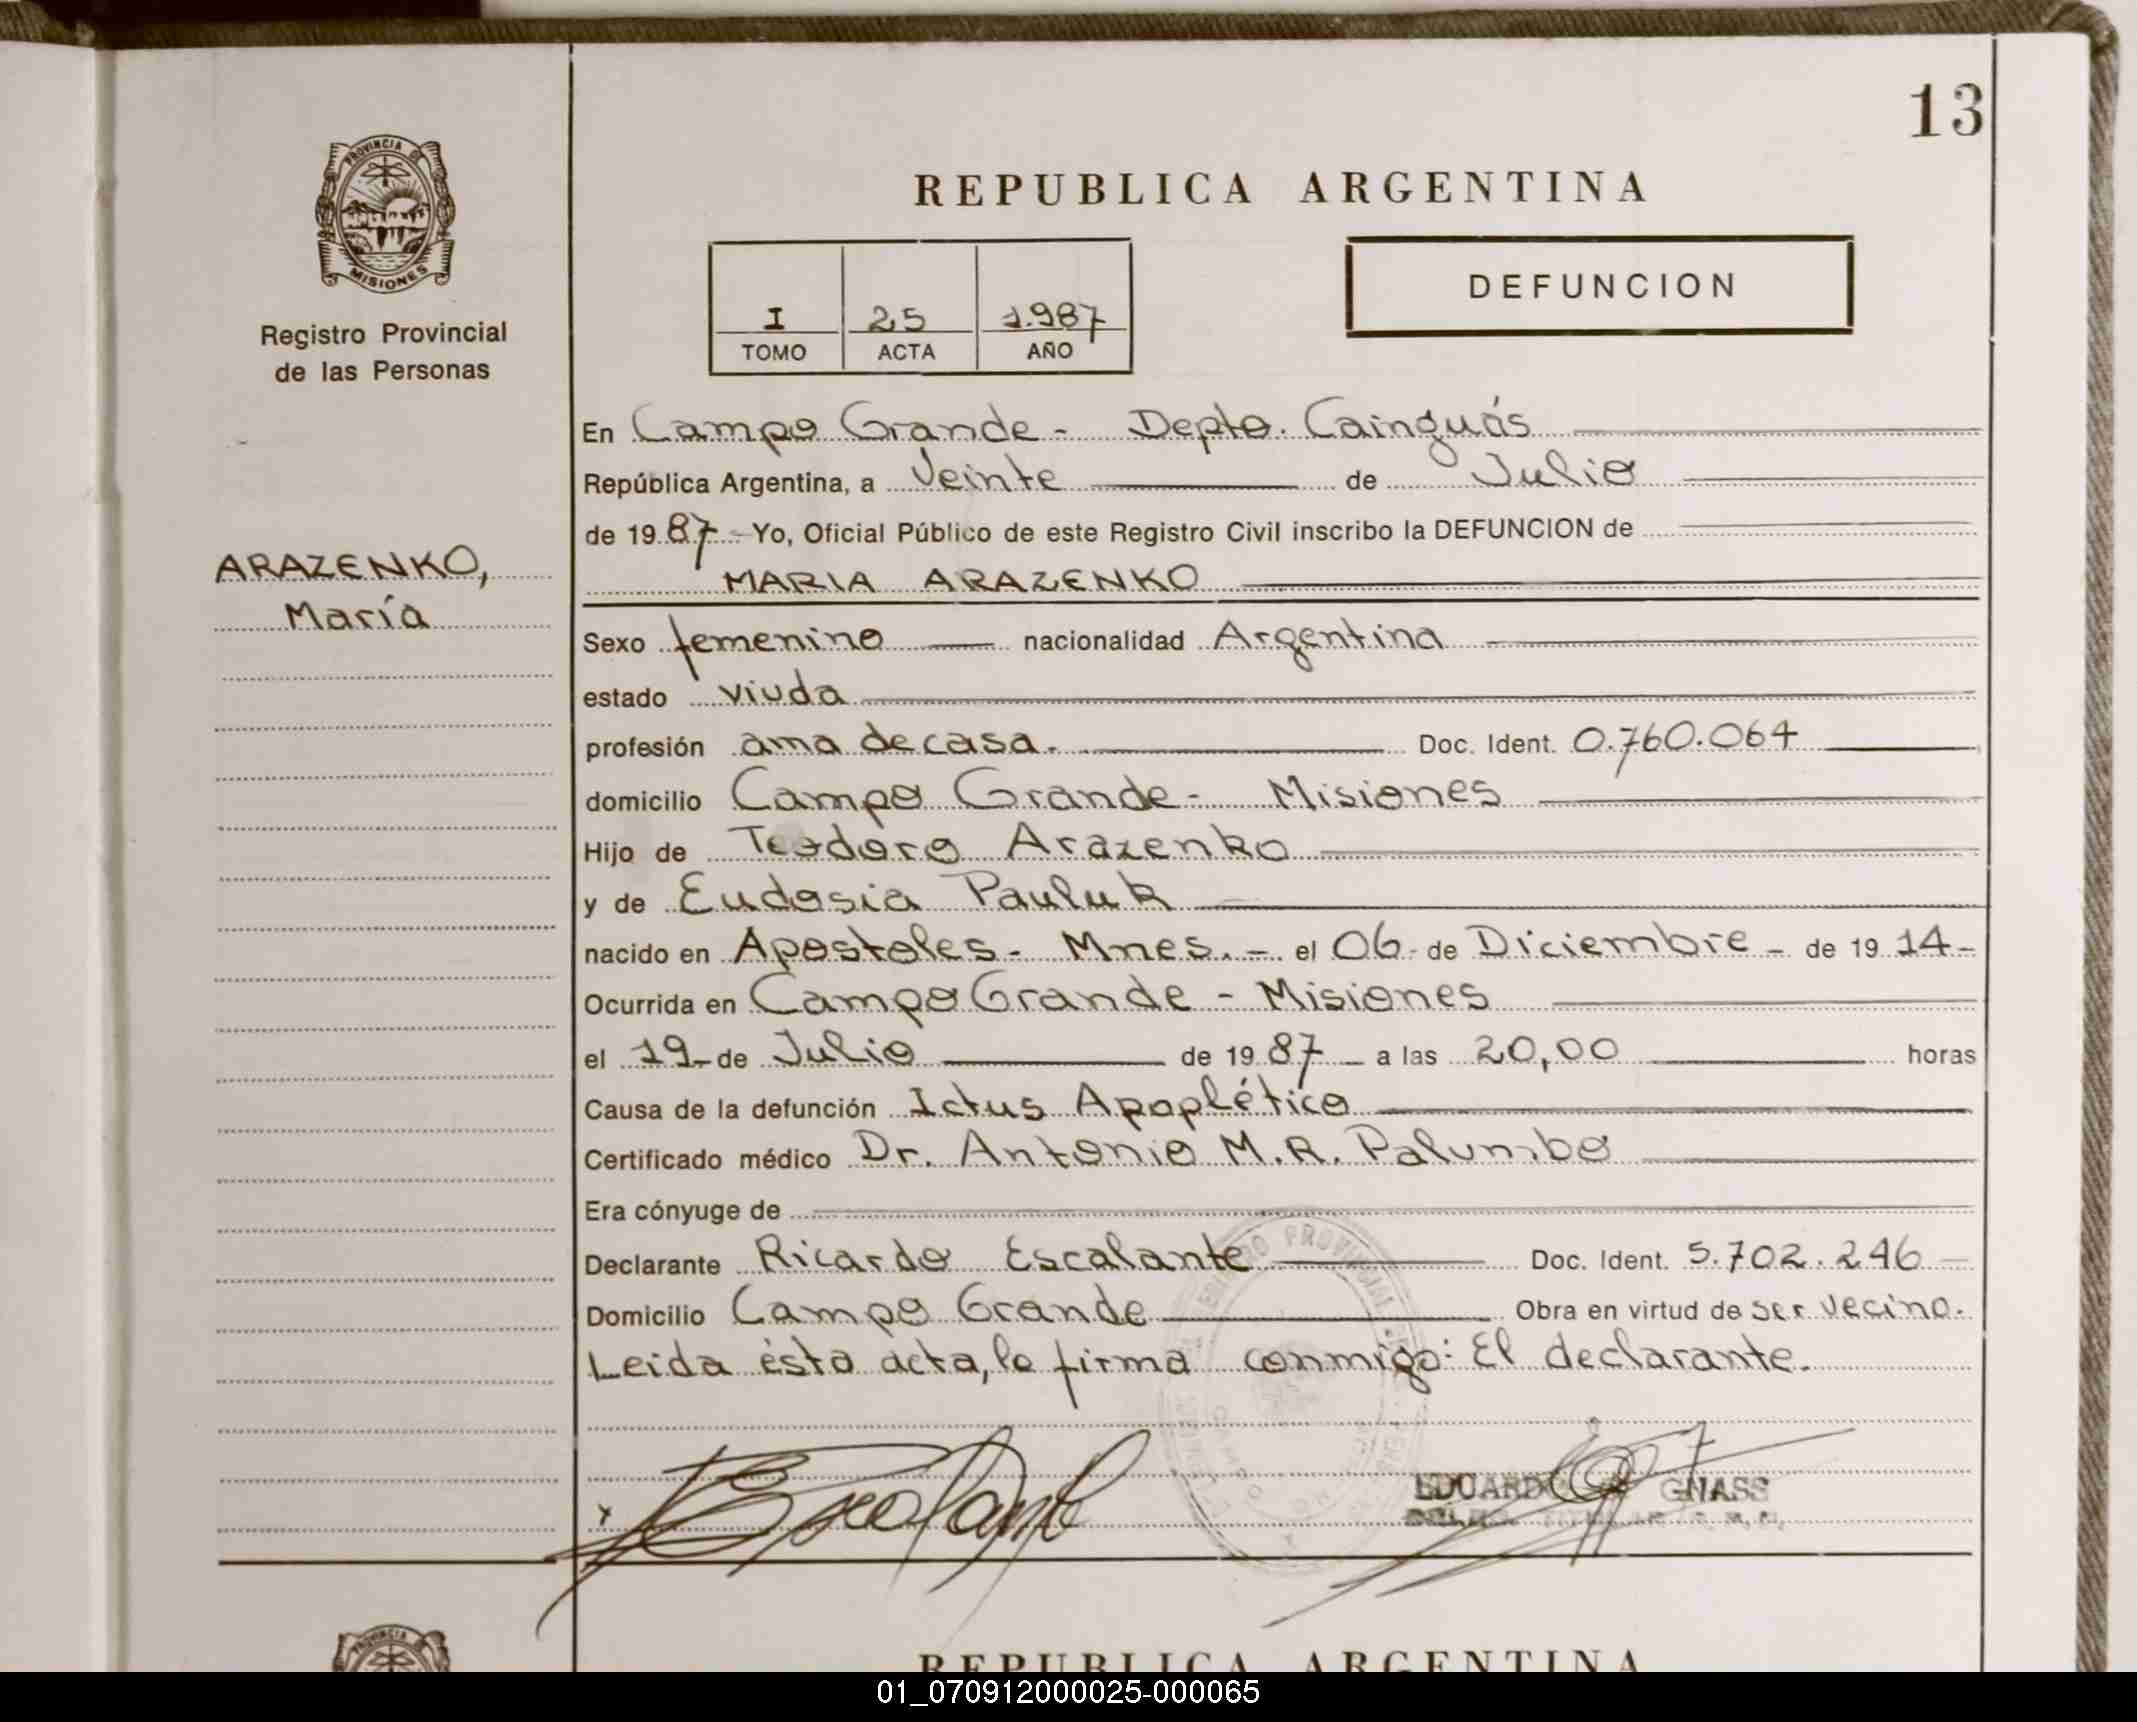 13
PROVINCIA DE
MISIONES
Registro Provincial
de las Personas
ARAZENKO,
María
REPUBLICA ARGENTINA
I 25 1.987
TOMO ACTA AÑO
DEFUNCION
En Campo Grande - Depto. Cainguás
República Argentina, a Veinte de Julio
de 1987 - Yo, Oficial Público de este Registro Civil inscribo la DEFUNCION de
MARIA ARAZENKO
Sexo femenino nacionalidad Argentina
estado viuda
profesión ama de casa. Doc. Ident. 0.760.064
domicilio Campo Grande - Misiones
Hijo de Teodoro Arazenko
y de Eudosia Pauluk
nacido en Apostoles - Mnes. - el 06 - de Diciembre - de 1914 -
Ocurrida en Campo Grande - Misiones
el 19 - de Julio de 1987 - a las 20,00 horas
Causa de la defunción Ictus Apoplético
Certificado médico Dr. Antonio M.R. Palumbo
Era cónyuge de
Declarante Ricardo Escalante Doc. Ident. 5.702.246
Domicilio Campo Grande Obra en virtud de ser vecino.
Leida ésta acta, la firma conmigo: El declarante.
x Escalante
EDUARDO GNASS
PROVINCIA DE
REPUBLICA ARGENTINA
01_070912000025-000065